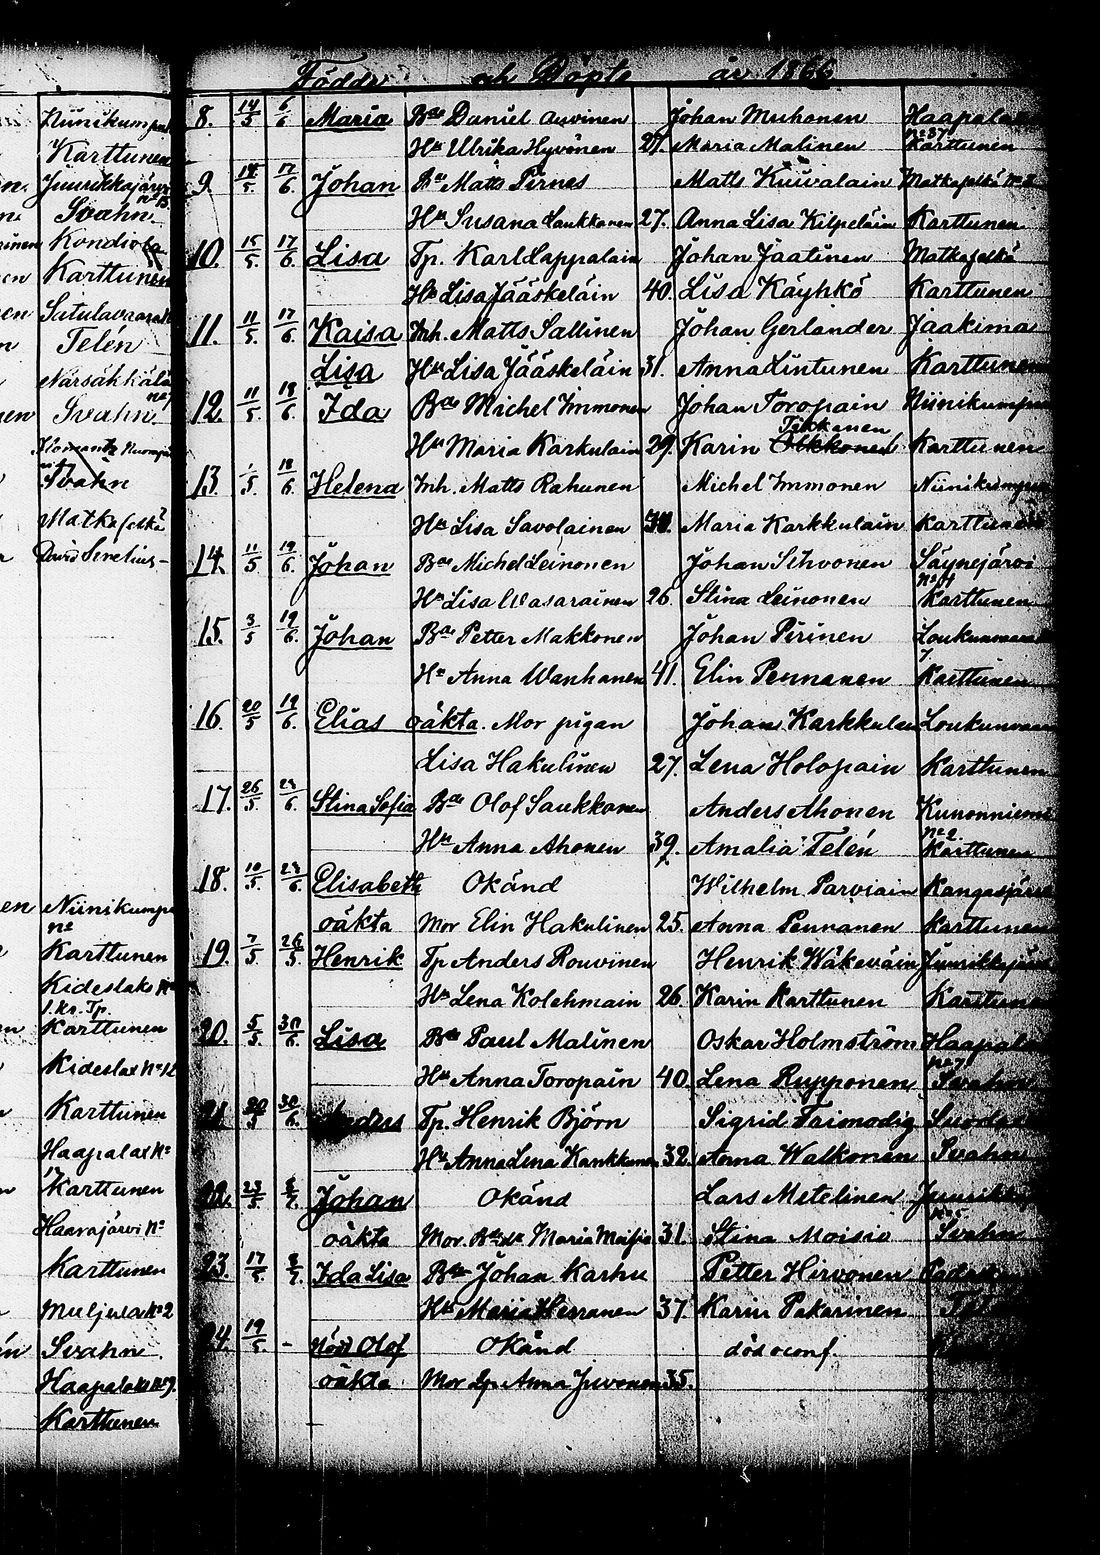 Födde och Döpte år 1866
Niinikumpu
Karttunen
Juurikkajärvi
Svahn
Kondiola
Karttunen
Sutulavaara
Telén
Närsäkkälä
Svahn
Svahn
Matkaselkä
David Serelius
Niinikumpu
No
Karttunen
Kideslaks No
l. kr. Tp.
Karttunen
Kideslax No 12
Karttunen
Haapalax No
17
Karttunen
Haarajärvi No
Karttunen
Muljula No 2
Svahn
Haapalaks No 9.
Karttunen
8. 14/5 6/6 Maria Bde Daniel Auvinen Johan Muhonen Haapalax
Hu Ulrika Hyvönen 27. Maria Malinen No 37 Karttunen
9. 18/5 17/6 Johan Be Matts Pirnes Matts Kuivalain Matkaselkä No 2
Hu Susana Laukkanen 27. Anna Lisa Kilpeläin Karttunen
10. 15/5 17/6 Lisa Tp. Karl Lappalain Johan Jaatinen Matkaselkä
Hu Lisa Jääskeläin 40. Lisa Käyhkö Karttunen
11. 11/5 17/6 Kaisa Inh. Matts Sallinen Johan Gerlander Jaakima
Lisa Hu Lisa Jääskeläin 31. Anna Lintunen Karttunen
12. 11/5 18/6 Ida Bde Michel Immonen Johan Toropain Niinikumpu
Hu Maria Karkulain 29. Karin Tikkanen Karttunen
13. 1/5 18/6 Helena Inh. Matts Rahunen Michel Immonen Niinikumpu
Hu Lisa Savolainen Maria Karkkulain Karttunen
14. 11/5 19/6 Johan Bde Michel Leinonen Johan Sihvonen Säynejärvi
Hu Lisa Wasarainen 26. Stina Leinonen No 4 Karttunen
15. 3/5 19/6 Johan Bde Petter Makkonen Johan Pirinen Loukunvaara
Hu Anna Wanhanen 41. Elin Pennanen 7 Karttunen
16. 20/5 19/6 Elias oäkta. Mor pigan Johan Karkkulen Loukunvaara
Lisa Hakulinen 27. Lena Holopain Karttunen
17. 26/5 23/6 Stina Sofia Bde Olof Saukkonen Anders Ahonen Kunonniemi
Hu Anna Ahonen 39. Amalia Telén No 2 Karttunen
18. 10/5 23/6 Elisabeth Okänd Wilhelm Parviain Kangasjärvi
oäkta Mor Elin Hakulinen 25. Anna Pennanen Karttunen
19. 7/5 26/5 Henrik Tp Anders Rouvinen Henrik Wäkeväin Juurikkajärvi
Hu Lena Kolehmain 26. Karin Karttunen Karttunen
20. 5/5 30/6 Lisa Bde Paul Malinen Oskar Holmström Haapalax
Hu Anna Toropain 40. Lena Rupponen No 7 Svahn
21. 30/6 Anders Tp. Henrik Björn Sigrid Taimodig
Hu Anna Lena Kankkunen 32. Anna Walkonen Svahn
22. 23/5 8/7 Johan Okänd Lars Metelinen Juurikka
oäkta Mor. Maria Moisio 31. Stina Moisio No 5 Svahn
23. 17/5 8/7 Ida Lisa Bde Johan Karhu Petter Hirvonen
Hu Maria Herranen 37. Karin Pakarinen
24. 19/5 - Nöd Olof Okänd död o conf.
oäkta Mor Anna Juvonen 35.